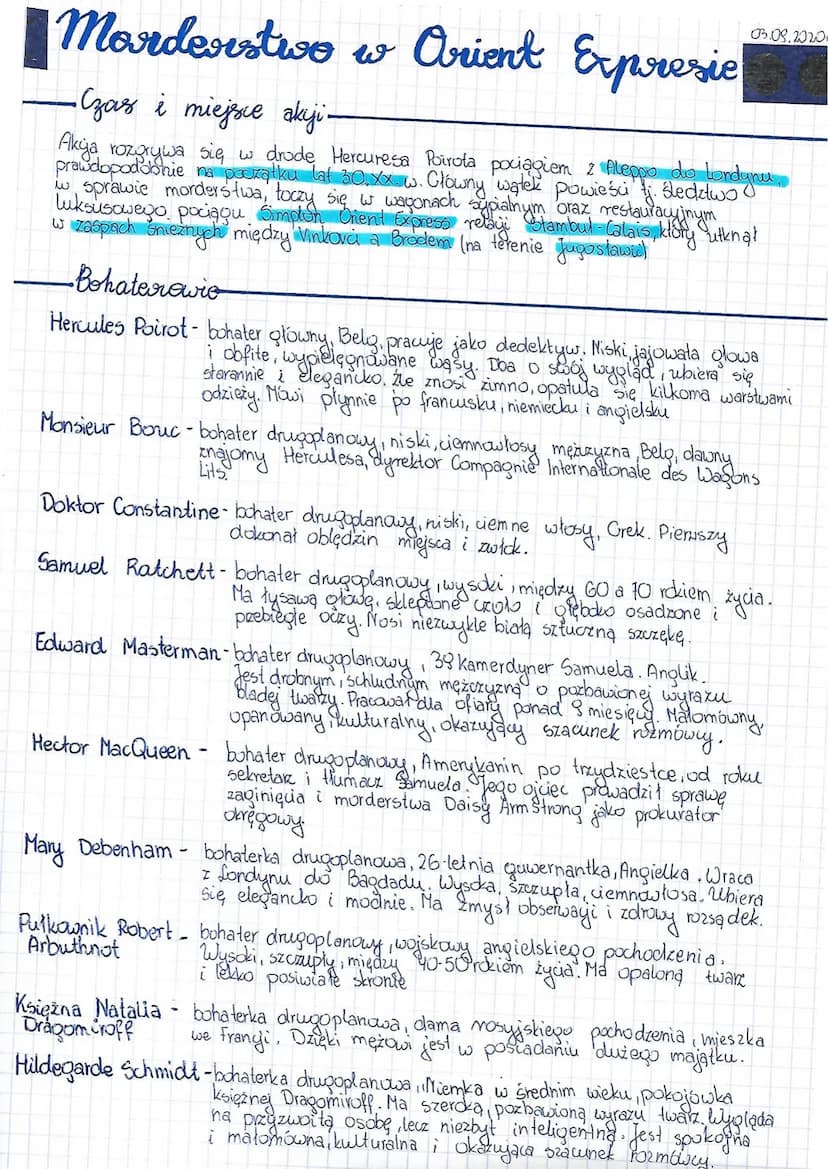 Morderstwo w Orient Expresie
03.09.2020
Czas i miejsce akcji
Akcja rozgrywa się w drodę Hercuresa Poirota pociągiem z Aleppo do Londynu,
prawdopodobnie na początku lat 30. XX w. Główny wątek powieści tj. śledztwo
w sprawie morderstwa, toczy się w wagonach sypialnym oraz restauracyjnym
luksusowego pociągu Simplon Orient Express relacji Stambuł-Calais, który utknął
w zaspach śnieżnych między Vinkovci a Brodem (na terenie Jugosławii)
Bohaterowie
Hercules Poirot - bohater główny, Belg, pracuje jako dedektyw. Niski, jajowata głowa
i obfite, wypielęgnowane wąsy. Dba o swój wygląd, ubiera się
starannie i elegancko. Źle znosi zimno, opatula się kilkoma warstwami
odzieży. Mówi płynnie po francusku, niemiecku i angielsku
Monsieur Bouc - bohater drugoplanowy, niski, ciemnowłosy mężczyzna, Belg, dawny
znajomy Herculesa, dyrektor Compagnie Internationale des Wagons
Lits.
Doktor Constantine - bohater drugoplanowy, niski, ciemne włosy, Grek. Pierwszy
dokonał oblędzin miejsca i zwłok.
Samuel Ratchett - bohater drugoplanowy, wysoki, między 60 a 70 rokiem życia.
Ma łysawą głowę, sklepione czoło i głęboko osadzone i
przebiegłe oczy. Nosi niezwykle białą sztuczną szczękę.
Edward Masterman - bohater drugoplanowy, 39 kamerdyner Samuela. Anglik.
Jest drobnym, schludnym mężczyzną o pozbawionej wyrazu
bladej twarzy. Pracował dla ofiary ponad 9 miesięcy. Małomówny,
opanowany, kulturalny, okazujący szacunek rozmówcy.
Hector MacQueen - bohater drugoplanowy, Amerykanin po trzydziestce, od roku
sekretarz i tłumacz Samuela. Jego ojciec prowadził sprawę
zaginięcia i morderstwa Daisy Armstrong jako prokurator
okręgowy.
Mary Debenham - bohaterka drugoplanowa, 26-letnia guwernantka, Angielka. Wraca
z Londynu do Bagdadu. Wysoka, szczupła, ciemnowłosa. Ubiera
się elegancko i modnie. Ma zmysł obserwacji i zdrowy rozsądek.
Pułkownik Robert - bohater drugoplanowy, wojskowy angielskiego pochodzenia.
Arbuthnot Wysoki, szczupły, między 40-50 rokiem życia. Ma opaloną twarz
i lekko posiwiałe skronie
Księżna Natalia - bohaterka drugoplanowa, dama rosyjskiego pochodzenia, mieszka
Dragomiroff we Francji. Dzięki mężowi jest w posiadaniu dużego majątku.
Hildegarde Schmidt - bohaterka drugoplanowa, Niemka w średnim wieku, pokojówka
księżnej Dragomiroff. Ma szeroką, pozbawioną wyrazu twarz. Wygląda
na przyzwoitą osobę, lecz niezbyt inteligentną. Jest spokojna
i małomówna, kulturalna i okazująca szacunek rozmówcy.